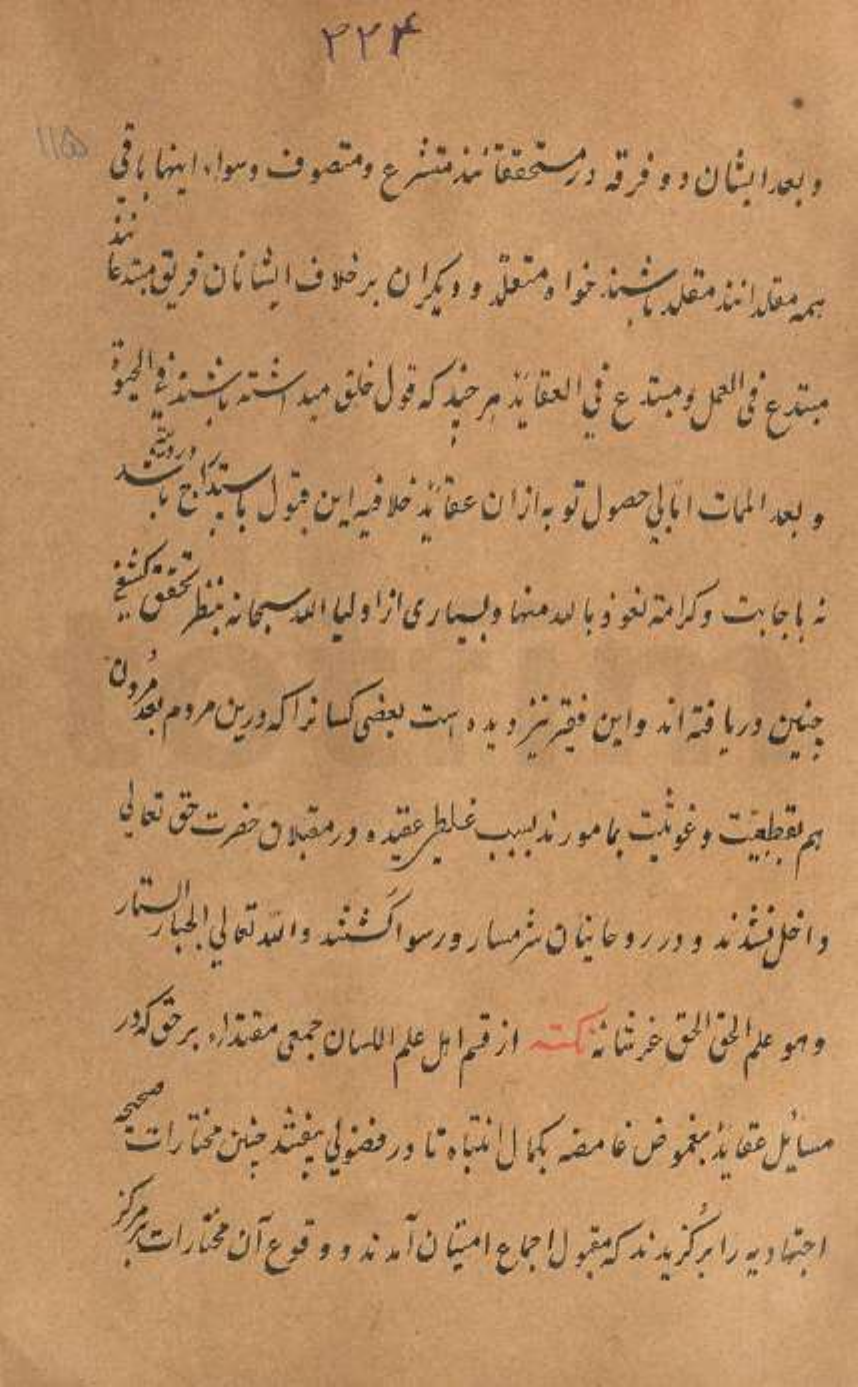 ۳۲۴
۱۱۵
و بعد ایشان دو فرقه در مستحققانند متشرع و متصوف و سواء اینها باقی
همه مقلدانند مقلد باشند خواه متعلّم و دیکران بر خلاف ایشانان فریق مبتدعانند
مبتدع فی العمل و مبتدع فی العقائد هر چند که قول خلق میداشته باشند فی الحیوة
و بعد الممات اما لی حصول توبه ازان عقائد خلافیه این قبول باستدراج باشد
نه باجابت و کرامته نعوذ بالله منها و بسیاری از اولیا الله سبحانه بنظر تحقق کشفی
چنین دریافته اند و این فقیر نیز دیده است بعضی کسانرا که درین مردم بعد مردن
هم بقطبیت و غوثیت بامورند بسبب غلطی عقیده در مقبلان حضرت حق تعالی
داخل نشدند و در روحانیان شرمسار و رسوا کشتند والله تعالی الجبار الستار
وهو علم الحق الحق عز شانه نکته از قسم اهل علم اللسان جمعی مقتداء بر حق که در
مسایل عقائد بغموض غامضه بکمال انتباه تا در فضولی نیفتند چنین مختارات صحیحه
اجتهادیه را برگزیدند که مقبول اجماع امتیان آمدند و وقوع آن مختارات بر مرکز